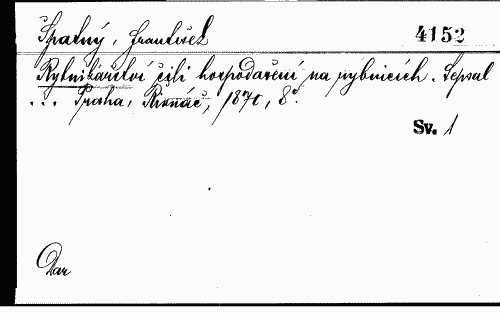 Špatný, František
4152
Rybnikářství čili hospodaření na rybnících. Sepsal
... Praha, Rivnáč, 1870, 8°.
Sv. 1
Dar